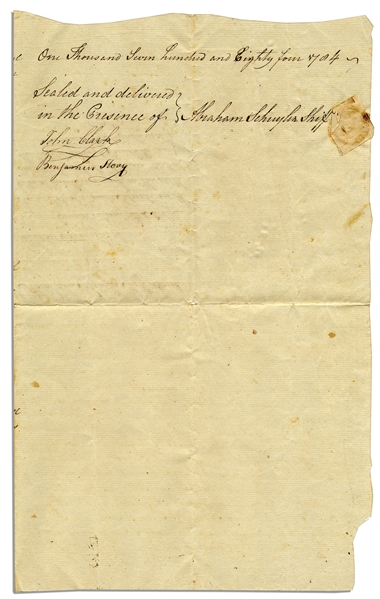 One Thousand Seven hundred and Eighty four 1784
Sealed and delivered
in the Presence of } Abraham Schuyler Sheff
John Clark
Benjamin Hovy